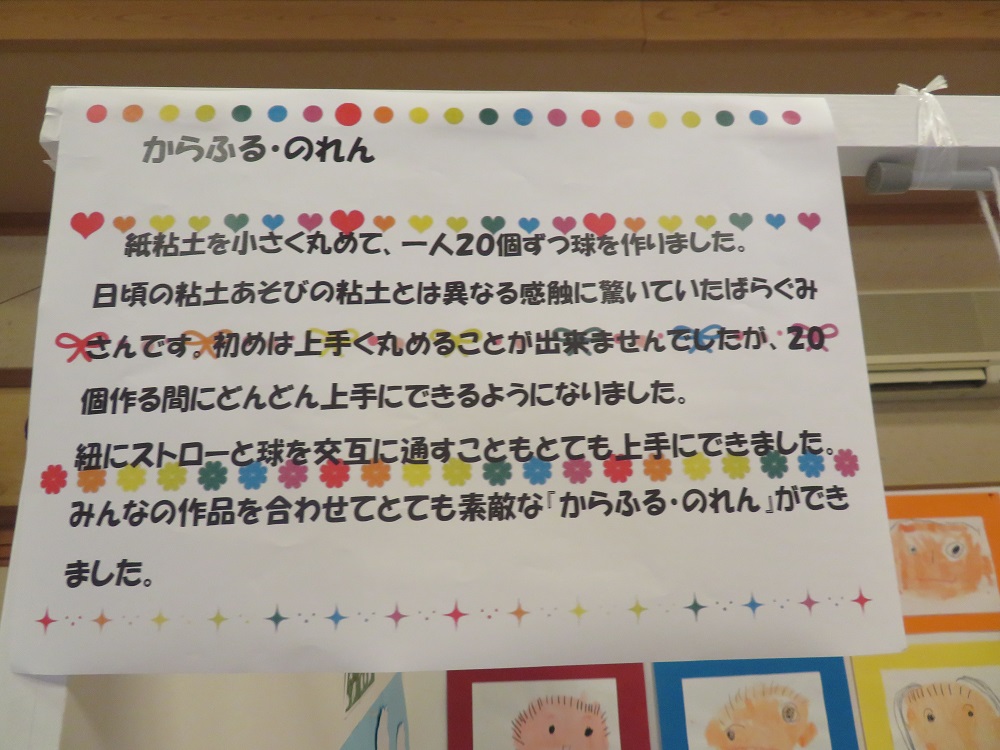 からふる・のれん
紙粘土を小さく丸めて、一人２０個ずつ球を作りました。
日頃の粘土あそびの粘土とは異なる感触に驚いていたばらぐみ
さんです。初めは上手く丸めることが出来ませんでしたが、２０
個作る間にどんどん上手にできるようになりました。
紐にストローと球を交互に通すこともとても上手にできました。
みんなの作品を合わせてとても素敵な『からふる・のれん』ができ
ました。